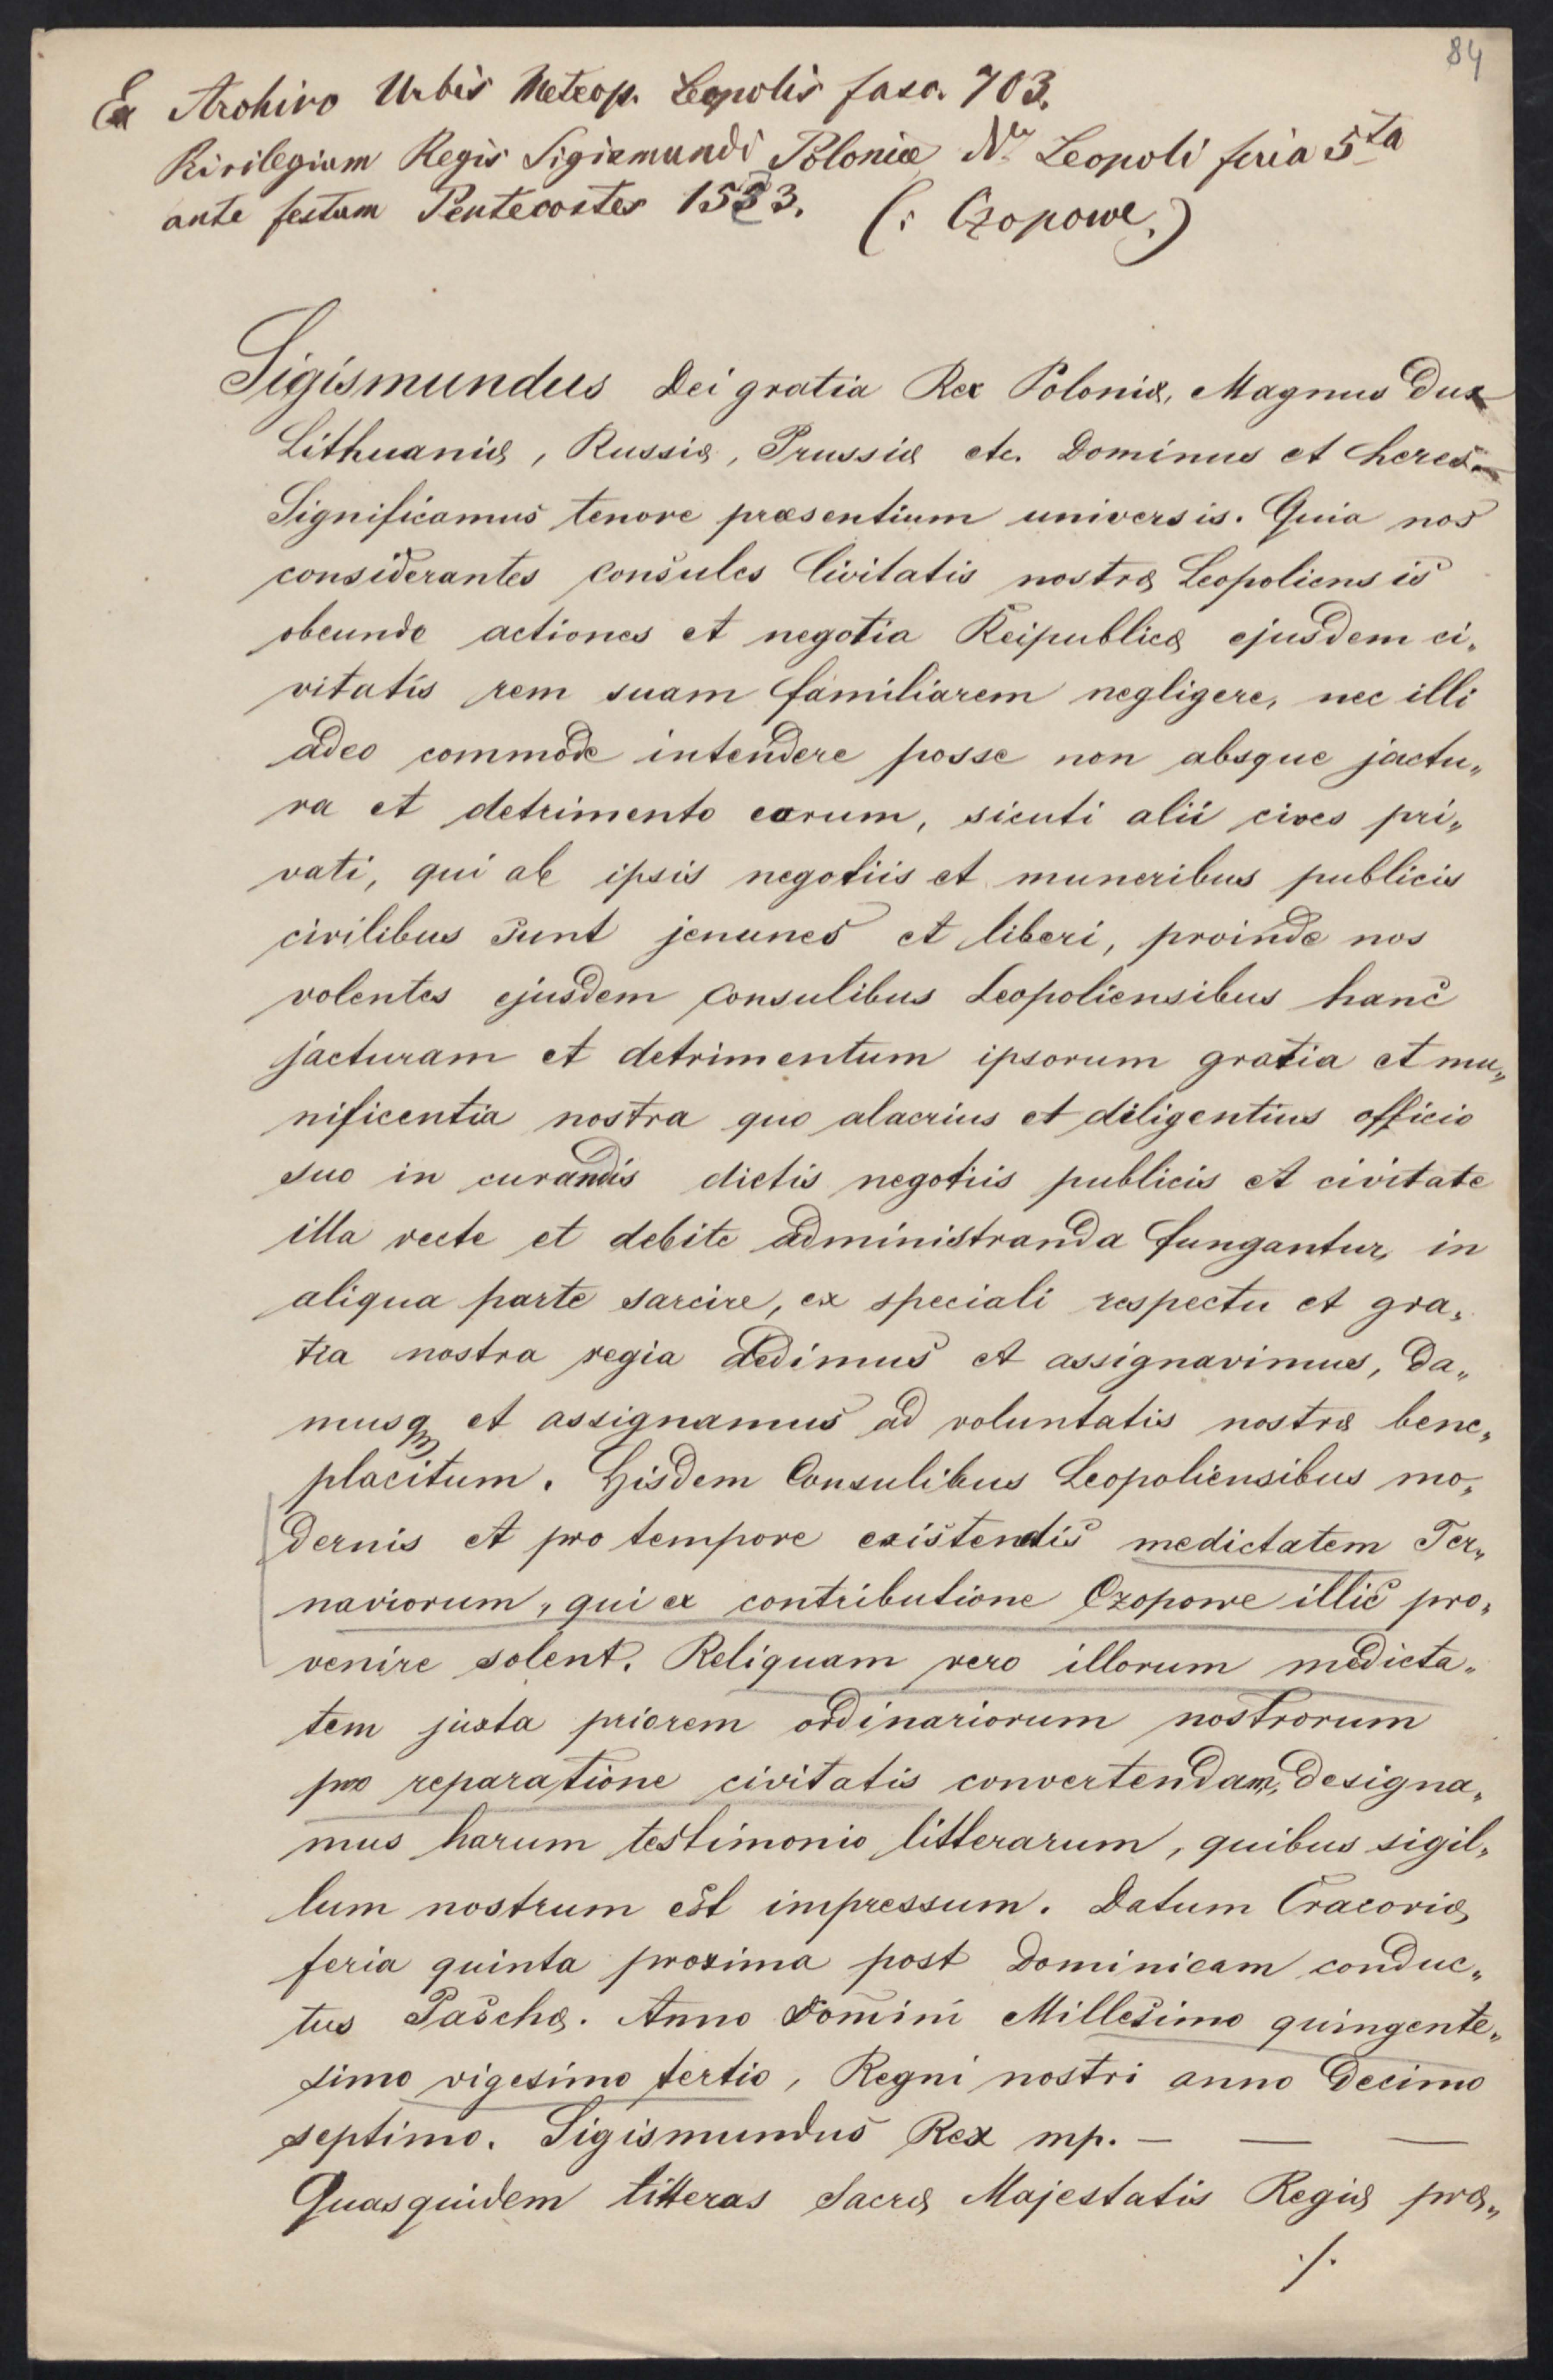 84
Ex Archivo Urbis Metrop. Leopolis fasc. 703.
Privilegium Regis Sigismundi Poloniæ Leopoli feria 5ta
ante festum Pentecostes 1533. (: Czopowe.)
Sigismundus Dei gratia Rex Poloniæ, Magnus Dux
Lithuaniæ, Russiæ, Prussiæ etc. Dominus et heres
Significamus tenore præsentium universis. Quia nos
considerantes Consules Civitatis nostræ Leopoliensis
obeundo actiones et negotia Reipublicæ ejusdem ci„
vitatis rem suam familiarem negligere, nec illi
adeo commode intendere posse non absque jactu„
ra et detrimento earum, sicuti alii cives pri„
vati, qui ab ipsis negotiis et muneribus publicis
civilibus sunt jenunes et liberi, proinde nos
volentes ejusdem Consulibus Leopoliensibus hanc
jacturam et detrimentum ipsorum gratia et mu„
nificentia nostra quo alacrius et diligentius officio
suo in curandis dictis negotiis publicis et civitate
illa recte et debite administranda fungantur, in
aliqua parte sarcire, ex speciali respectu et gra„
tia nostra regia dedimus et assignavimus, da„
musq et assignamus ad voluntatis nostræ bene„
placitum. Hisdem Consulibus Leopoliensibus mo„
dernis et pro tempore existentis medietatem Ter„
nariorum, qui ex contributione Czopowe illic pro„
venire solent. Reliquam vero illorum medieta„
tem juxta priorem ordinariorum nostrorum
pro reparatione civitatis convertendam, designa„
mus harum testimonio litterarum, quibus sigil„
lum nostrum est impressum. Datum Cracoviæ
feria quinta proxima post Dominicam conduc„
tus Paschæ. Anno Domini Millesimo quingente„
simo vigesimo tertio, Regni nostri anno Decimo
septimo. Sigismundus Rex mp. — — —
Quasquidem litteras Sacræ Majestatis Regiæ præ„
./.